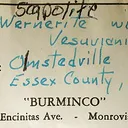 Scapolite
Wernerite w
Vesuviani
Olmstedville
Essex County,
"BURMINCO"
Encinitas Ave. - Monrovi